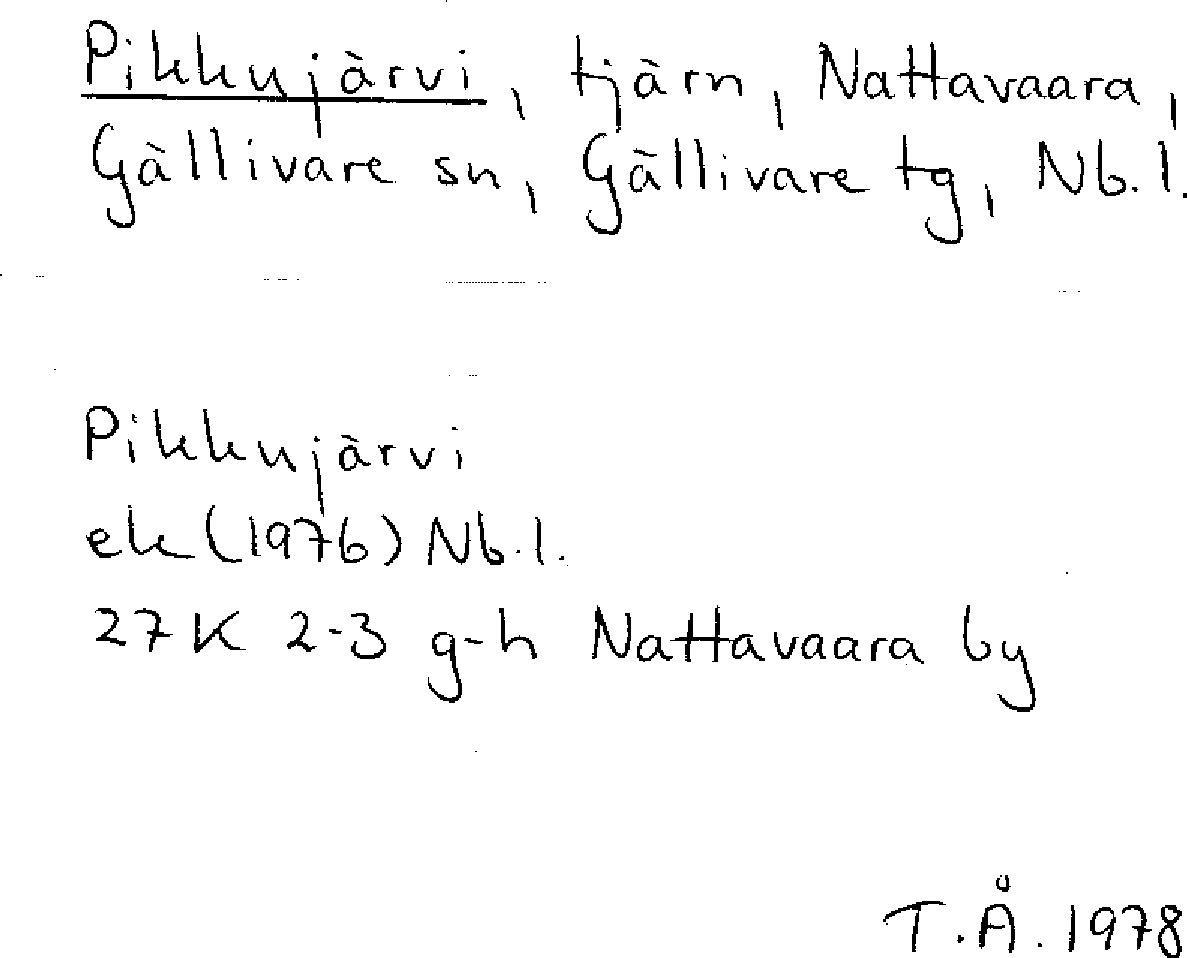 Pikkujärvi, tjärn, Nattavaara,
Gällivare sn, Gällivare tg, Nb.l.
Pikkujärvi
ek (1976) Nb.l.
27K 2-3 g-h Nattavaara by
T.Å. 1978